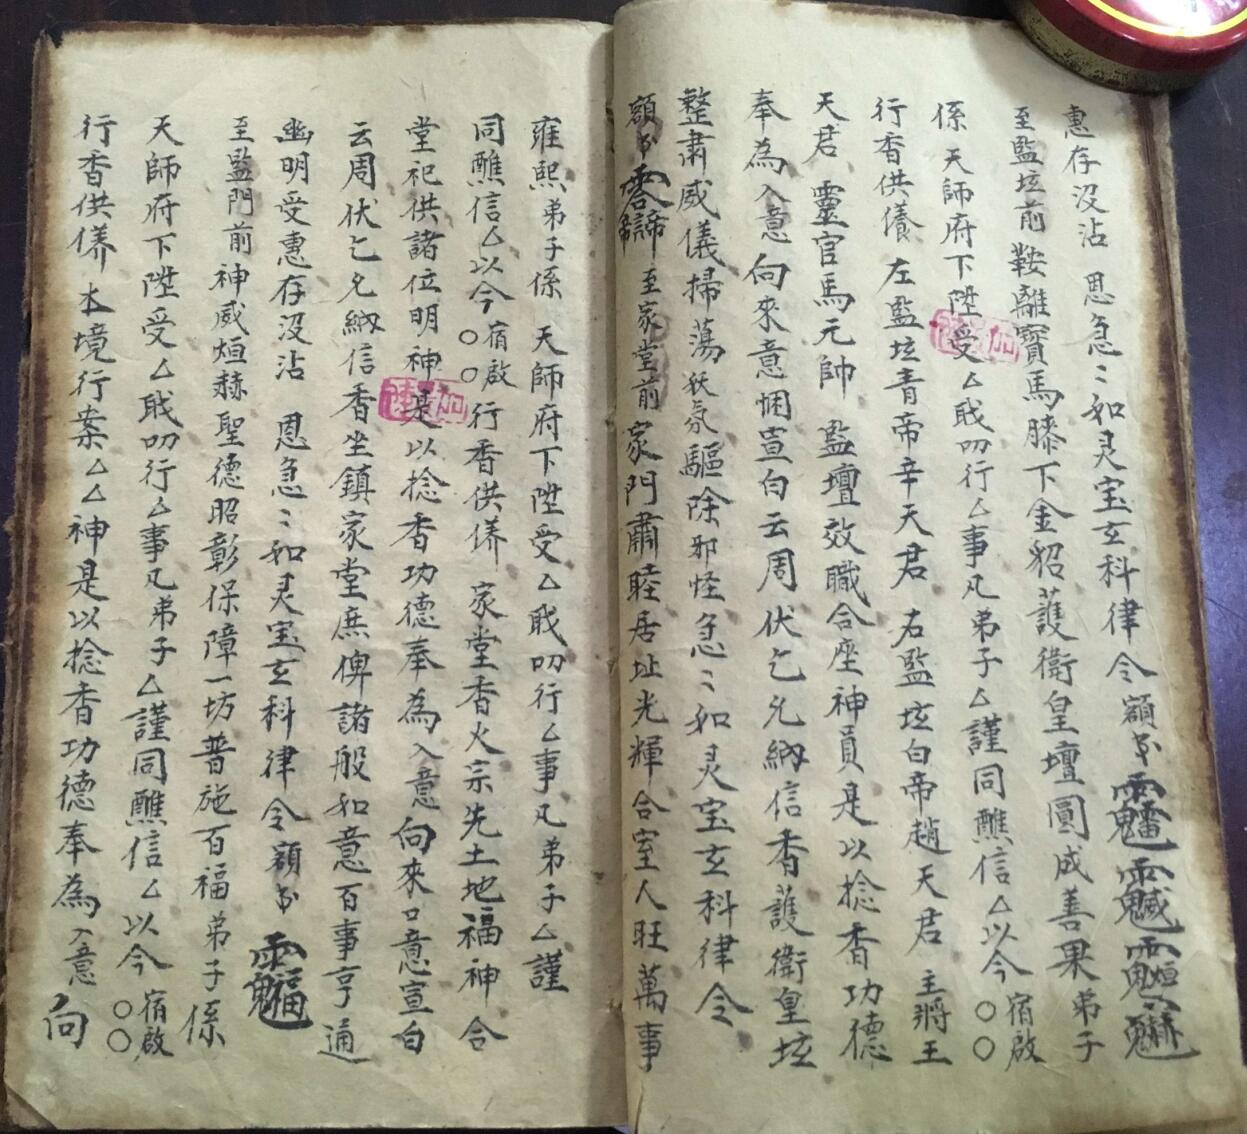 惠存没沾 恩急〻如灵宝玄科律令額书
至監坛前 鞍離寳馬膝下金貂護衛皇壇圓成善果弟子
係 天師府下陞受厶戢叨行厶事凡弟子厶謹同醮信厶以今宿啟〇〇
行香供養 左監坛青帝辛天君 右監坛白帝趙天君 主將王
天君 靈官馬元帥 監壇效職合座神員是以捻香功德
奉為入意向來意悃宣白云周伏乞允納信香護衛皇坛
整肅威儀掃蕩妖氛驅除邪怪急〻如灵宝玄科律令
額书 至家堂前 家門肅睦居址光輝合室人旺萬事
雍熙弟子係 天師府下陞受厶戢叨行厶事凡弟子厶謹
同醮信厶以今宿啟〇〇行香供侪 家堂香火宗先土地福神合
堂祀供諸位明神是以捻香功德奉為入意向來口意宣白
云周伏乞允納信香坐鎮家堂庶俾諸般如意百事亨通
幽明受惠存没沾 恩急〻如灵宝玄科律令額书
至監門前神威烜赫聖德昭彰保障一坊普施百福弟子係
天師府下陞受厶戢叨行厶事凡弟子厶謹同醮信厶以今宿啟〇〇
行香供侪 本境行案厶厶神是以捻香功德奉為入意向